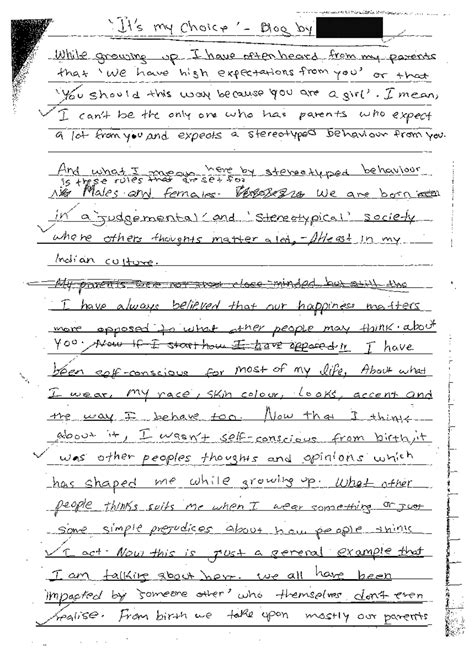 'It's my choice' - Blog by
While growing up, I have often heard from my parents
that 'We have high expectations from you' or that
'You should this way because you are a girl'. I mean,
I can't be the only one who has parents who expect
a lot from you and expects a stereotyped behaviour from you.
And what I mean here by stereotyped behaviour
is these rules that are set for
Males and females. We are born
in a 'judgemental' and 'stereotypical' society
where others thoughts matter a lot, - Atleast in my
Indian culture.
My parents were not close minded but still the
I have always believed that our happiness matters
more opposed to what other people may think about
you. Now if I start how I have opposed it I have
been self-conscious for most of my life, About what
I wear, my race, skin colour, looks, accent and
the way I behave too. Now that I think
about it, I wasn't self-conscious from birth, it
was other peoples thoughts and opinions which
has shaped me while growing up. What other
people thinks suits me when I wear something or just
some simple prejudices about how people think
I act. Now this is just a general example that
I am talking about here. we all have been
impacted by 'someone other' who themselves don't even
realise. From birth we take upon mostly our parents